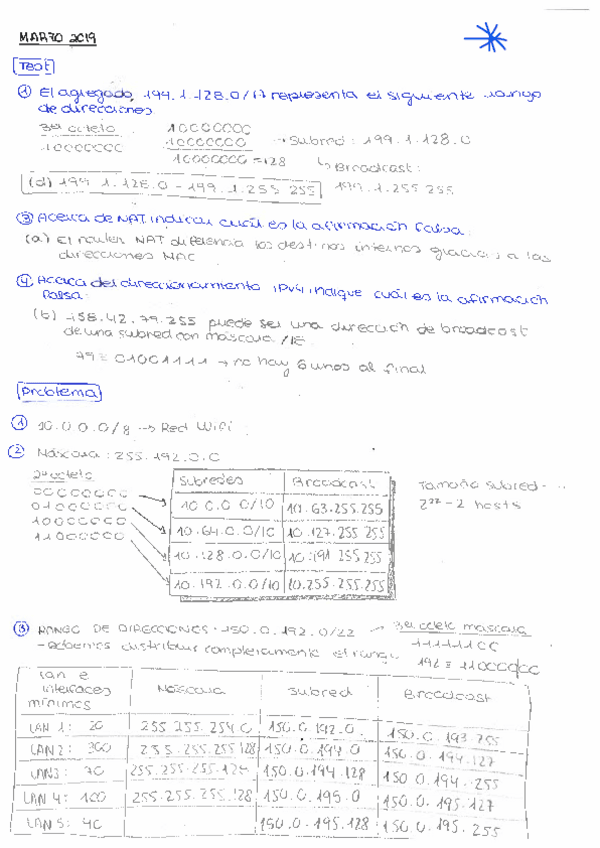 MARZO 2019
Test
① El agregado, 199.1.128.0/17 representa el siguiente rango
de direcciones
3er octeto 10000000
10000000 10000000 → Subred: 199.1.128.0
10000000 = 128 ↳ Broadcast:
(d) 199.1.128.0 - 199.1.255.255 199.1.255.255
③ Acerca de NAT indicar cuál es la afirmación falsa:
(a) El router NAT diferencia los destinos internos gracias a las
direcciones MAC
④ Acerca del direccionamiento IPv4 indique cuál es la afirmación
falsa:
(b) 158.42.79.255 puede ser una dirección de broadcast
de una subred con máscara /18
79 = 01001111 → no hay 6 unos al final
Problema
① 10.0.0.0/8 → Red WiFi
② Máscara: 255.192.0.0
2º octeto
00000000
01000000
10000000
11000000
Subredes Broadcast
10.0.0.0/10 10.63.255.255
10.64.0.0/10 10.127.255.255
10.128.0.0/10 10.191.255.255
10.192.0.0/10 10.255.255.255
Tamaño subred
2²²-2 hosts
③ RANGO DE DIRECCIONES: 150.0.192.0/22 → 3er octeto máscara
- debemos distribuir completamente el rango 11111100
192 = 11000000
Lan e interfaces mínimos Máscara Subred Broadcast
LAN 1: 20 255.255.254.0 150.0.192.0 150.0.193.255
LAN 2: 300 255.255.255.128 150.0.194.0 150.0.194.127
LAN 3: 70 255.255.255.128 150.0.194.128 150.0.194.255
LAN 4: 100 255.255.255.128 150.0.195.0 150.0.195.127
LAN 5: 40 150.0.195.128 150.0.195.255